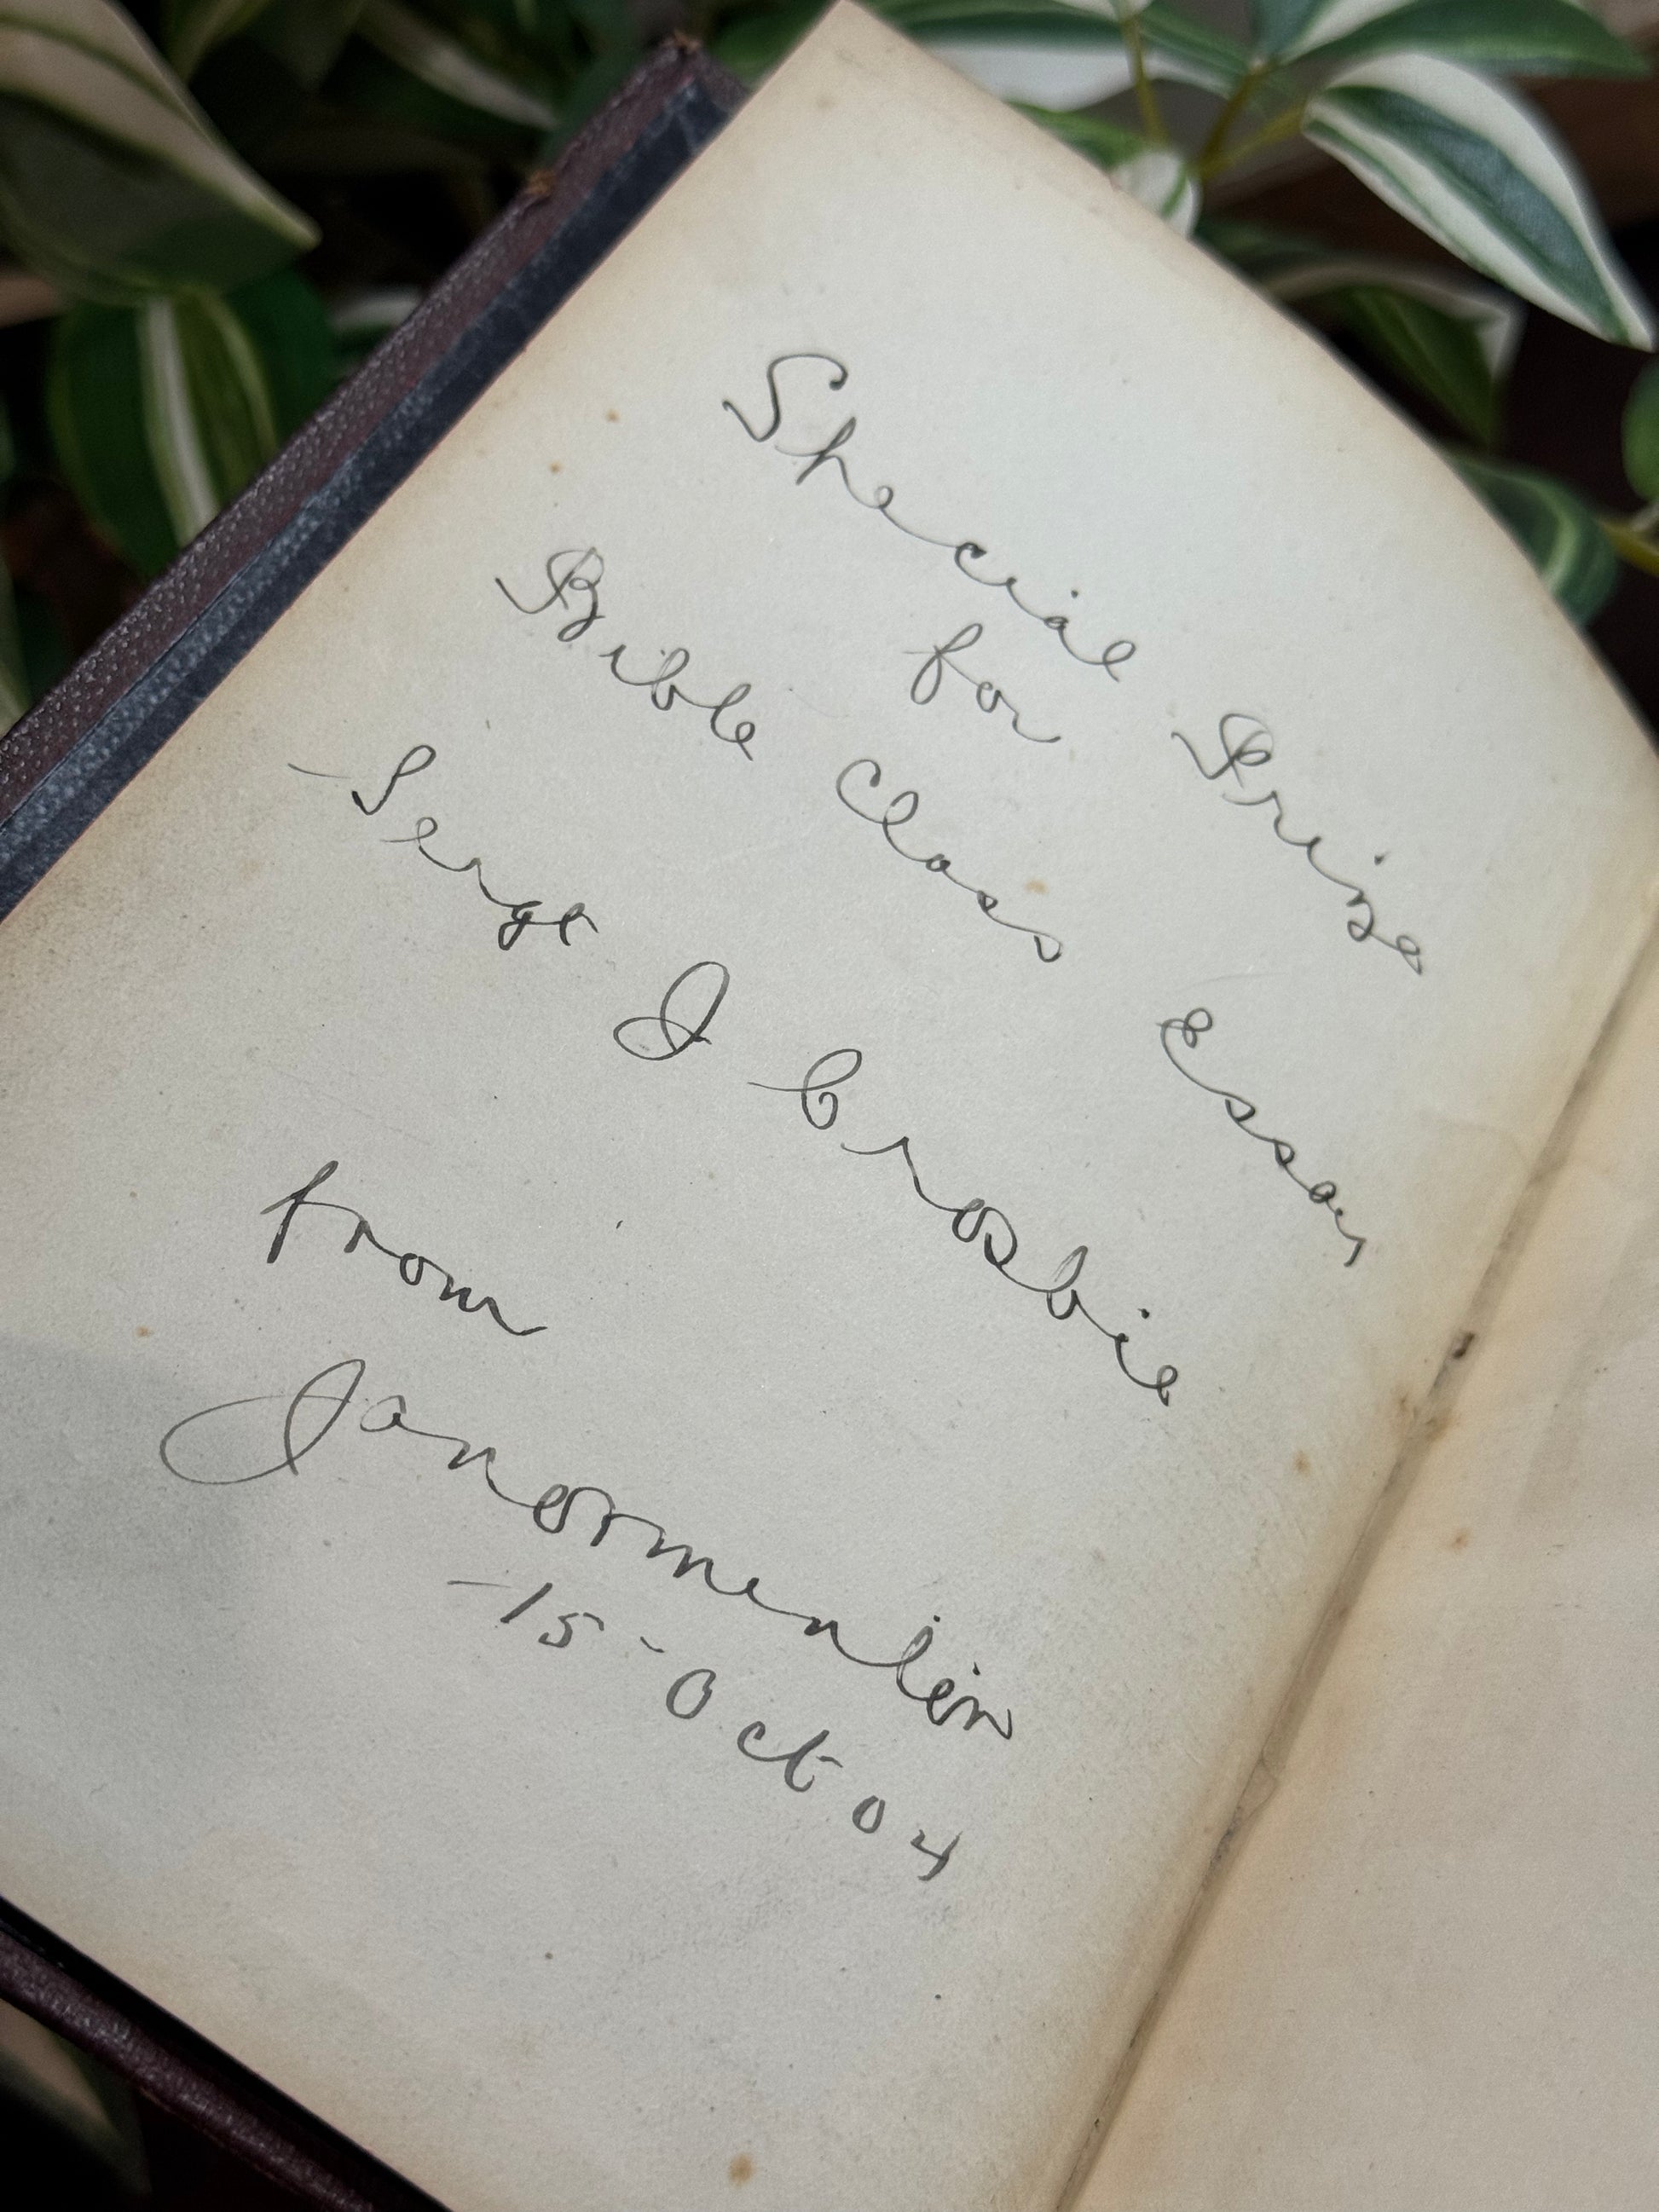 Special Prize
for
Bible Class Essay
Sergt J Crosbie
from
15 - Oct 04